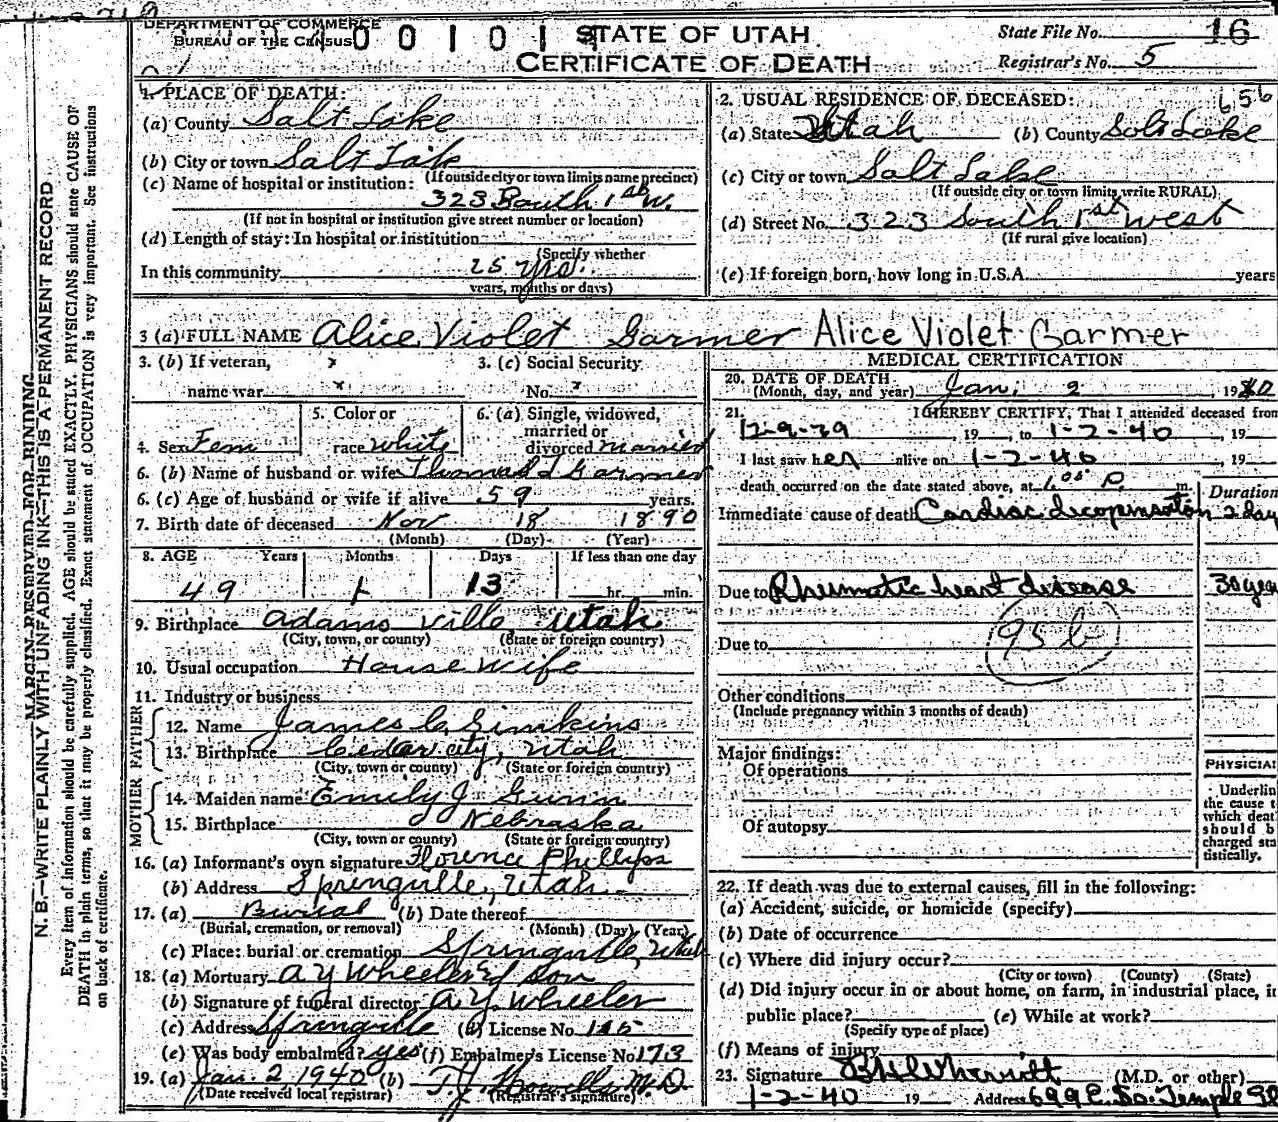 DEPARTMENT OF COMMERCE
BUREAU OF THE CENSUS
STATE OF UTAH
CERTIFICATE OF DEATH
State File No. 16
Registrar's No. 5
MARGIN RESERVED FOR BINDING
N. B.—WRITE PLAINLY WITH UNFADING INK—THIS IS A PERMANENT RECORD
Every item of information should be carefully supplied. AGE should be stated EXACTLY. PHYSICIANS should state CAUSE OF
DEATH in plain terms, so that it may be properly classified. Exact statement of OCCUPATION is very important. See instructions
on back of certificate.
1. PLACE OF DEATH:
(a) County Salt Lake
(b) City or town Salt Lake
(If outside city or town limits name precinct)
(c) Name of hospital or institution:
323 South 1st W.
(If not in hospital or institution give street number or location)
(d) Length of stay: In hospital or institution
(Specify whether
In this community 25 yrs.
years, months or days)
2. USUAL RESIDENCE OF DECEASED: 656
(a) State Utah (b) County Salt Lake
(c) City or town Salt Lake
(If outside city or town limits write RURAL)
(d) Street No. 323 South 1st West
(If rural give location)
(e) If foreign born, how long in U.S.A. years
3 (a) FULL NAME Alice Violet Garmer Alice Violet Garmer
3. (b) If veteran, x
name war x
3. (c) Social Security
No.
4. Sex Fem
5. Color or
race White
6. (a) Single, widowed,
married or
divorced married
6. (b) Name of husband or wife Thomas J Garmer
6. (c) Age of husband or wife if alive 59 years.
7. Birth date of deceased Nov 18 1890
(Month) (Day) (Year)
8. AGE Years Months Days If less than one day
49 1 13 hr. min.
9. Birthplace Adamsville Utah
(City, town, or county) (State or foreign country)
10. Usual occupation House Wife
11. Industry or business
FATHER
12. Name James C. Simkins
13. Birthplace Cedar City, Utah
(City, town or county) (State or foreign country)
MOTHER
14. Maiden name Emily J Gunn
15. Birthplace Nebraska
(City, town or county) (State or foreign country)
16. (a) Informant's own signature Florence Phillips
(b) Address Springville, Utah
17. (a) Burial (b) Date thereof
(Burial, cremation, or removal) (Month) (Day) (Year)
(c) Place: burial or cremation Springville, Utah
18. (a) Mortuary A Y Wheeler & Son
(b) Signature of funeral director A. Y. Wheeler
(c) Address Springville (d) License No. 115
(e) Was body embalmed? yes (f) Embalmer's License No. 173
19. (a) Jan. 2, 1940 (b) T. J. Howells M.D.
(Date received local registrar) (Registrar's signature)
MEDICAL CERTIFICATION
20. DATE OF DEATH
(Month, day, and year) Jan. 2, 1940
21. I HEREBY CERTIFY, That I attended deceased from
12-9-39, 19 , to 1-2-40, 19
I last saw her alive on 1-2-40, 19
death occurred on the date stated above, at 1:05 P. m.
Duration
Immediate cause of death Cardiac decopinsation 2 day
Due to Rheumatic heart disease 30 yea
Due to 95b
Other conditions
(Include pregnancy within 3 months of death)
Major findings:
Of operations
Of autopsy
PHYSICIAN
Underlin
the cause t
which deat
should b
charged sta
tistically.
22. If death was due to external causes, fill in the following:
(a) Accident, suicide, or homicide (specify)
(b) Date of occurrence
(c) Where did injury occur?
(City or town) (County) (State)
(d) Did injury occur in or about home, on farm, in industrial place, in
public place? (e) While at work?
(Specify type of place)
(f) Means of injury
23. Signature (M.D. or other)
1-2-40 19 Address 699 E. So. Temple St